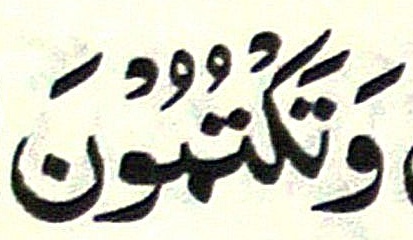 وَتَكْتُمُوْنَ